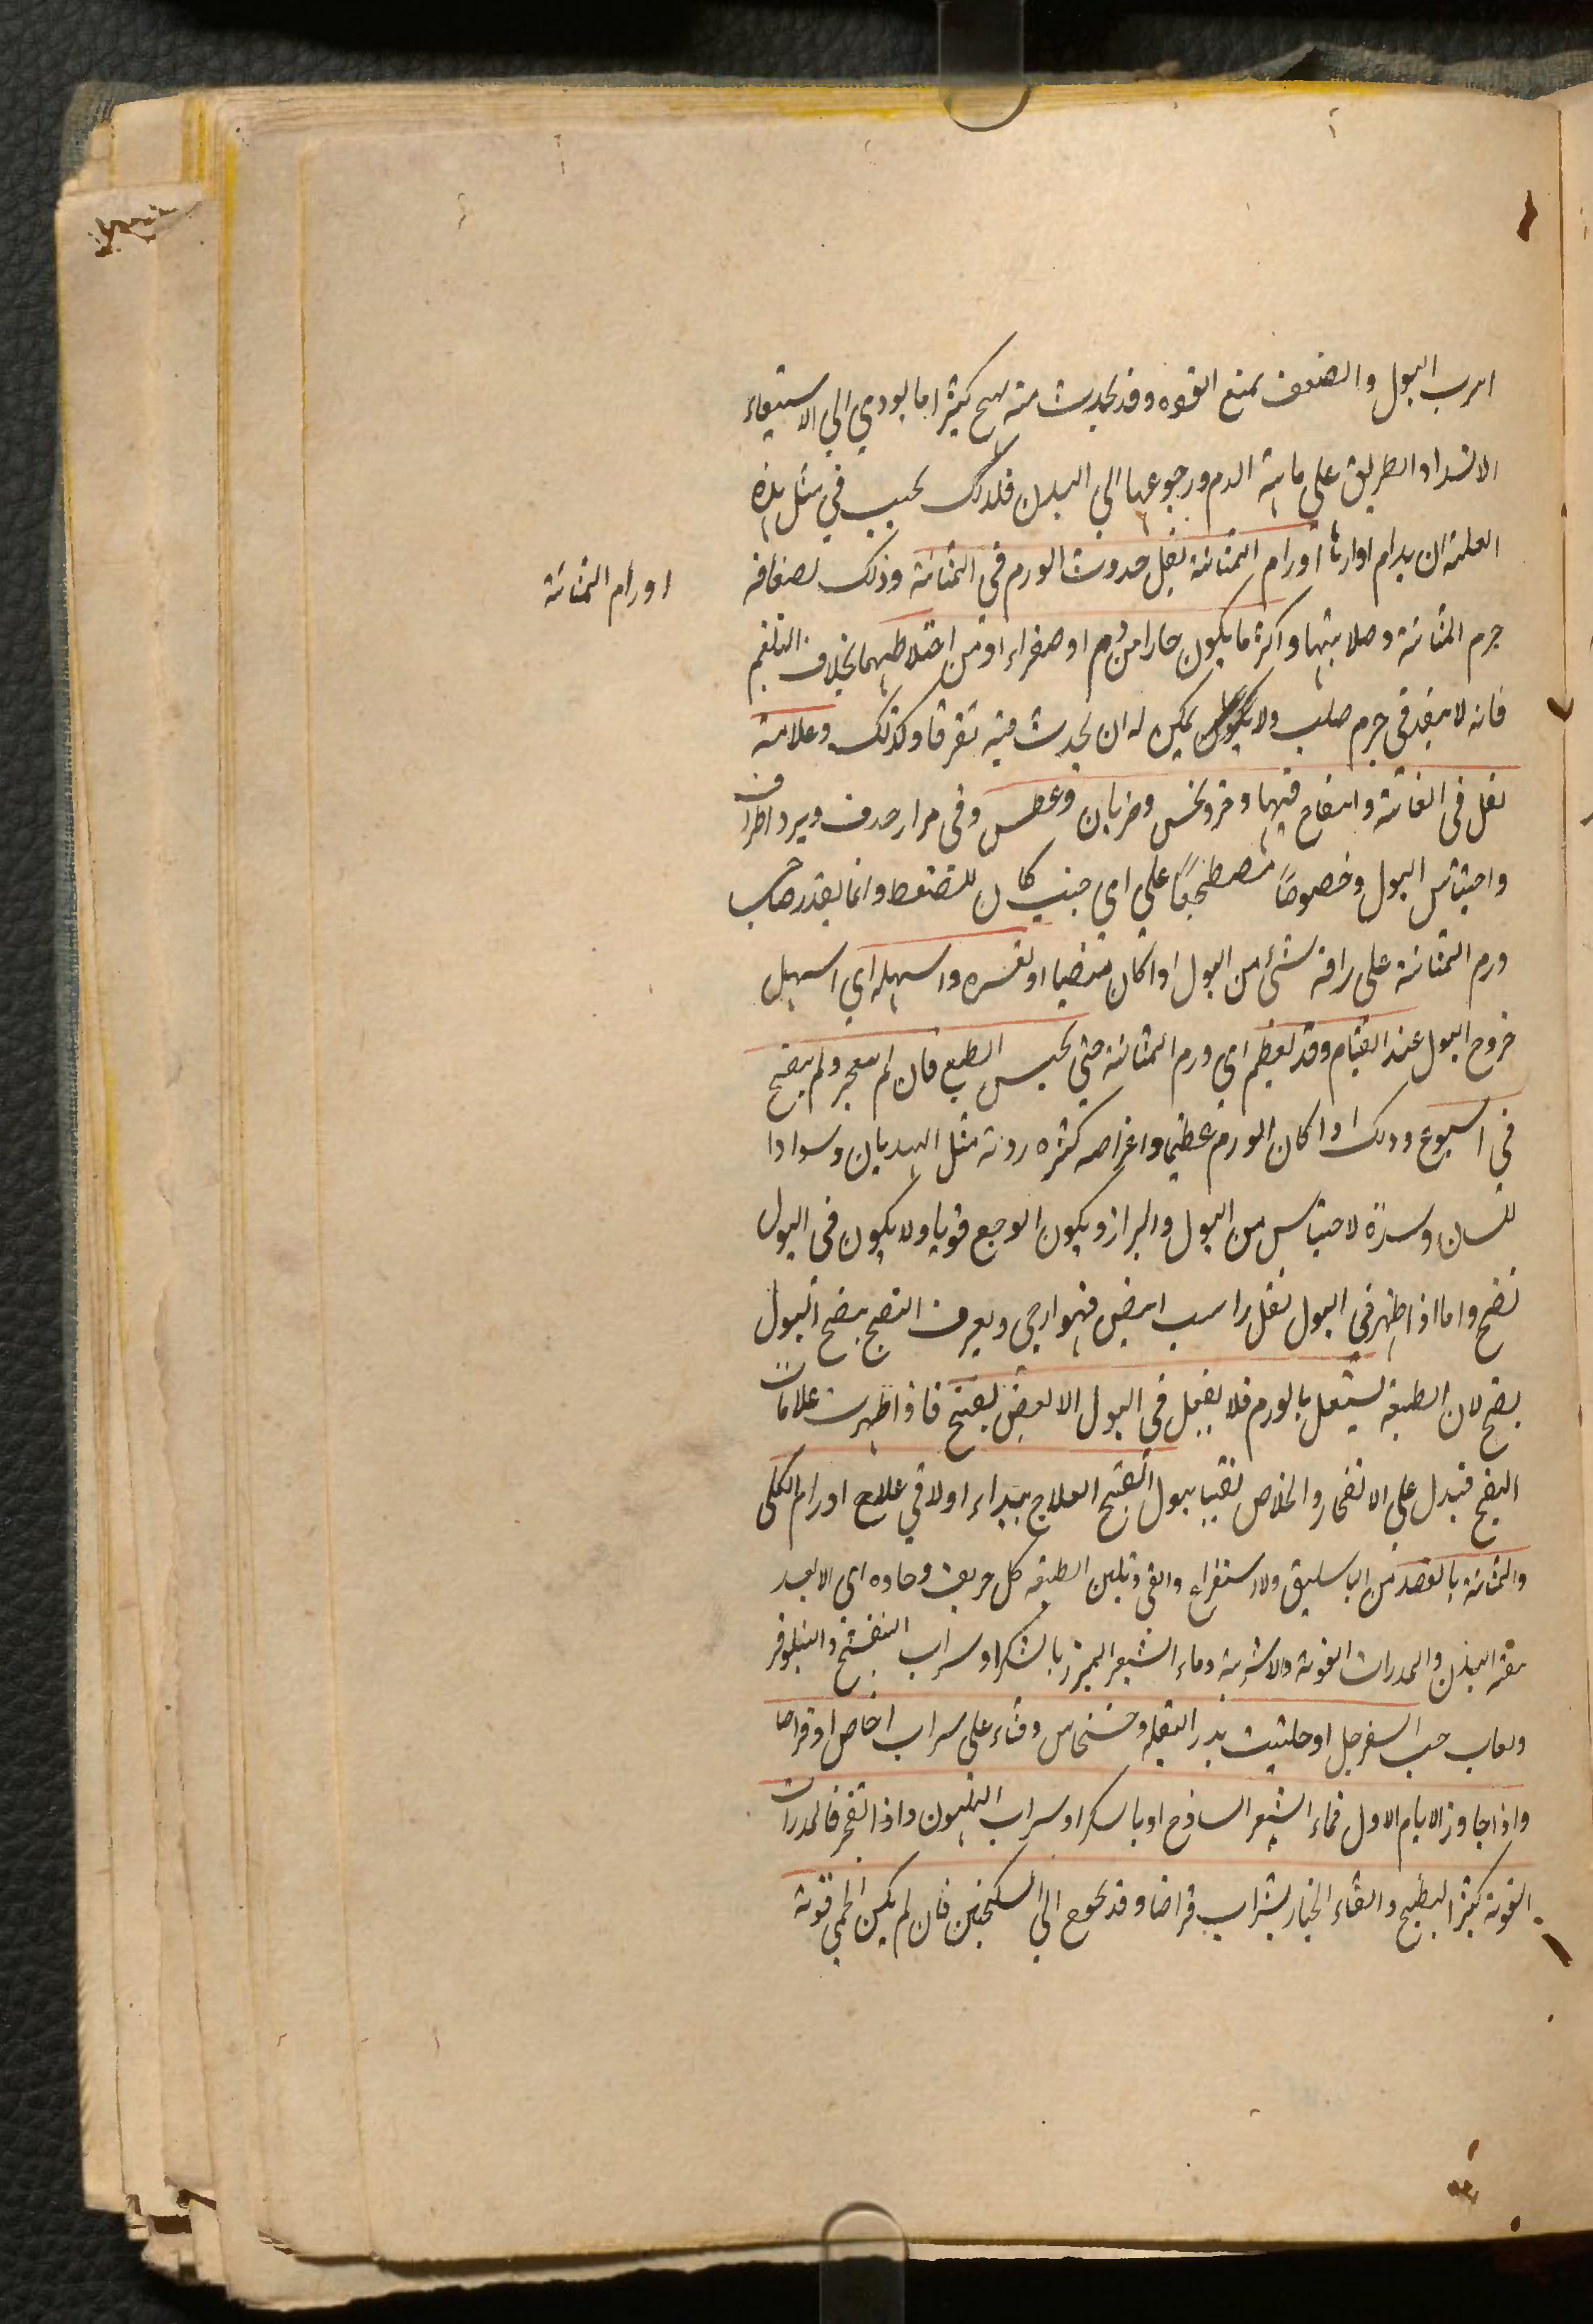 البول والضعف يمنع القوة وقد يحدث منه كثيرا ما يودي الي الاستسقاء
الانسداد الطريق على مائية الدم ورجوعها الي البدن فلذلك يجب في مثل هذه
العلة ان يدام ادرارها اورام المثانة يقل حدوث الورم في المثانة وذلك لصفاقة
اورام المثانة
جرم المثانة وصلابتها واكثر ما يكون حارا من دم او صفراء او من اختلاطهما بخلاف البلغم
فانه لا ينفد في جرم صلب ولا يمكن له ان يحدث فيه تفرقا وكذلك وعلامته
ثقل في العانة وانتفاخ فيها وخز ونخس وضربان وعطس وقي مرار صرف وبرد اطراف
واحتباس البول وخصوصا مضطجعا علي اي جنب كان للضغط وانما يقدر صاحب
ورم المثانة على راقة شئ من البول اذا كان منتصبا او لعسره واسهله اي اسهل
خروج البول عند القيام وقد يعظم اي ورم المثانة حتي يحبس الطبع فان لم ينفجر ولم ينضج
في اسبوع وذلك اذا كان الورم عظيما واعراضه كثيره ردية مثل الهذيان وسوادا
للسان وسدة لاحتباس من البول والبراز ويكون الوجع قويا ولا يكون في البول
نضج واما اذا ظهر في البول ثفل راسب ابيض فهو ارجى ويعرف النضج بنضج البول
نضج لان الطبيعة تشتغل بالورم فلا يفعل في البول الا لبعض نضج فاذا ظهرت علامات
النضج فيدل على الانفجار والخلاص نقيا ببول القيح العلاج يبتداء اولا في علاج اورام الكلى
والمثانة بالفصد من الباسليق ولاستفراغ والقي وتليين الطبيعة كل حريف وحاده اي الا بعد
نقه البدن والمدرات القوية والاشربة وماء الشعير المبزر بالشكر او سراب البنفسج والنيلوفر
ولعاب حب السفرجل او حليب بذر البقلة وخشخاش وقثاء على سراب اجاص او قراصا
واذا جاوز الايام الاول فماء الشعير الساذج او بالسكر او سراب الليمون واذا انفجر فالمدرات
القوية كبزر البطيخ والقثاء الخيار بشراب قراضا وقد يحوج الي السكنجبين فان لم يكن الحمي قوية